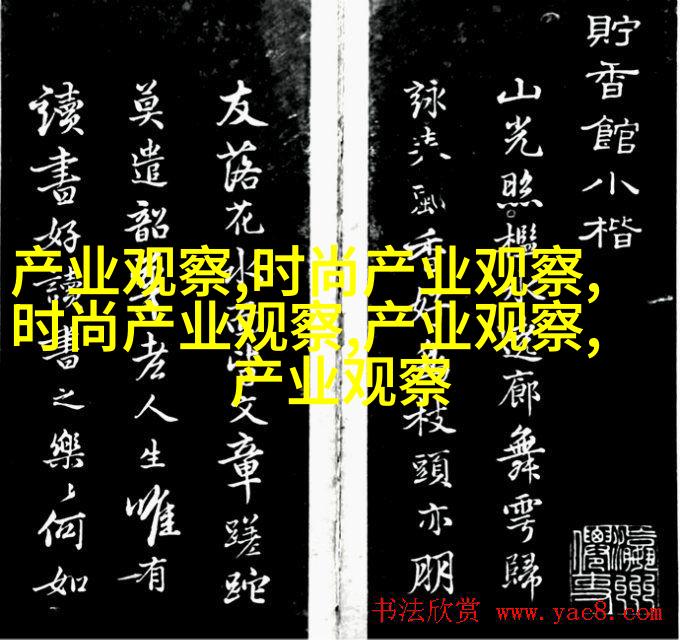 貯香館小楷
山光照檻水遶廊舞雩歸
詠春風香好鳥枝頭亦朋
友落花水面皆文章蹉跎
莫遣韶華老人生唯有
讀書好讀書之樂〻何如
产业观察,时尚产业观察,
时尚产业观察,产业观察,
产业观察
书法欣赏 www.yac8.com